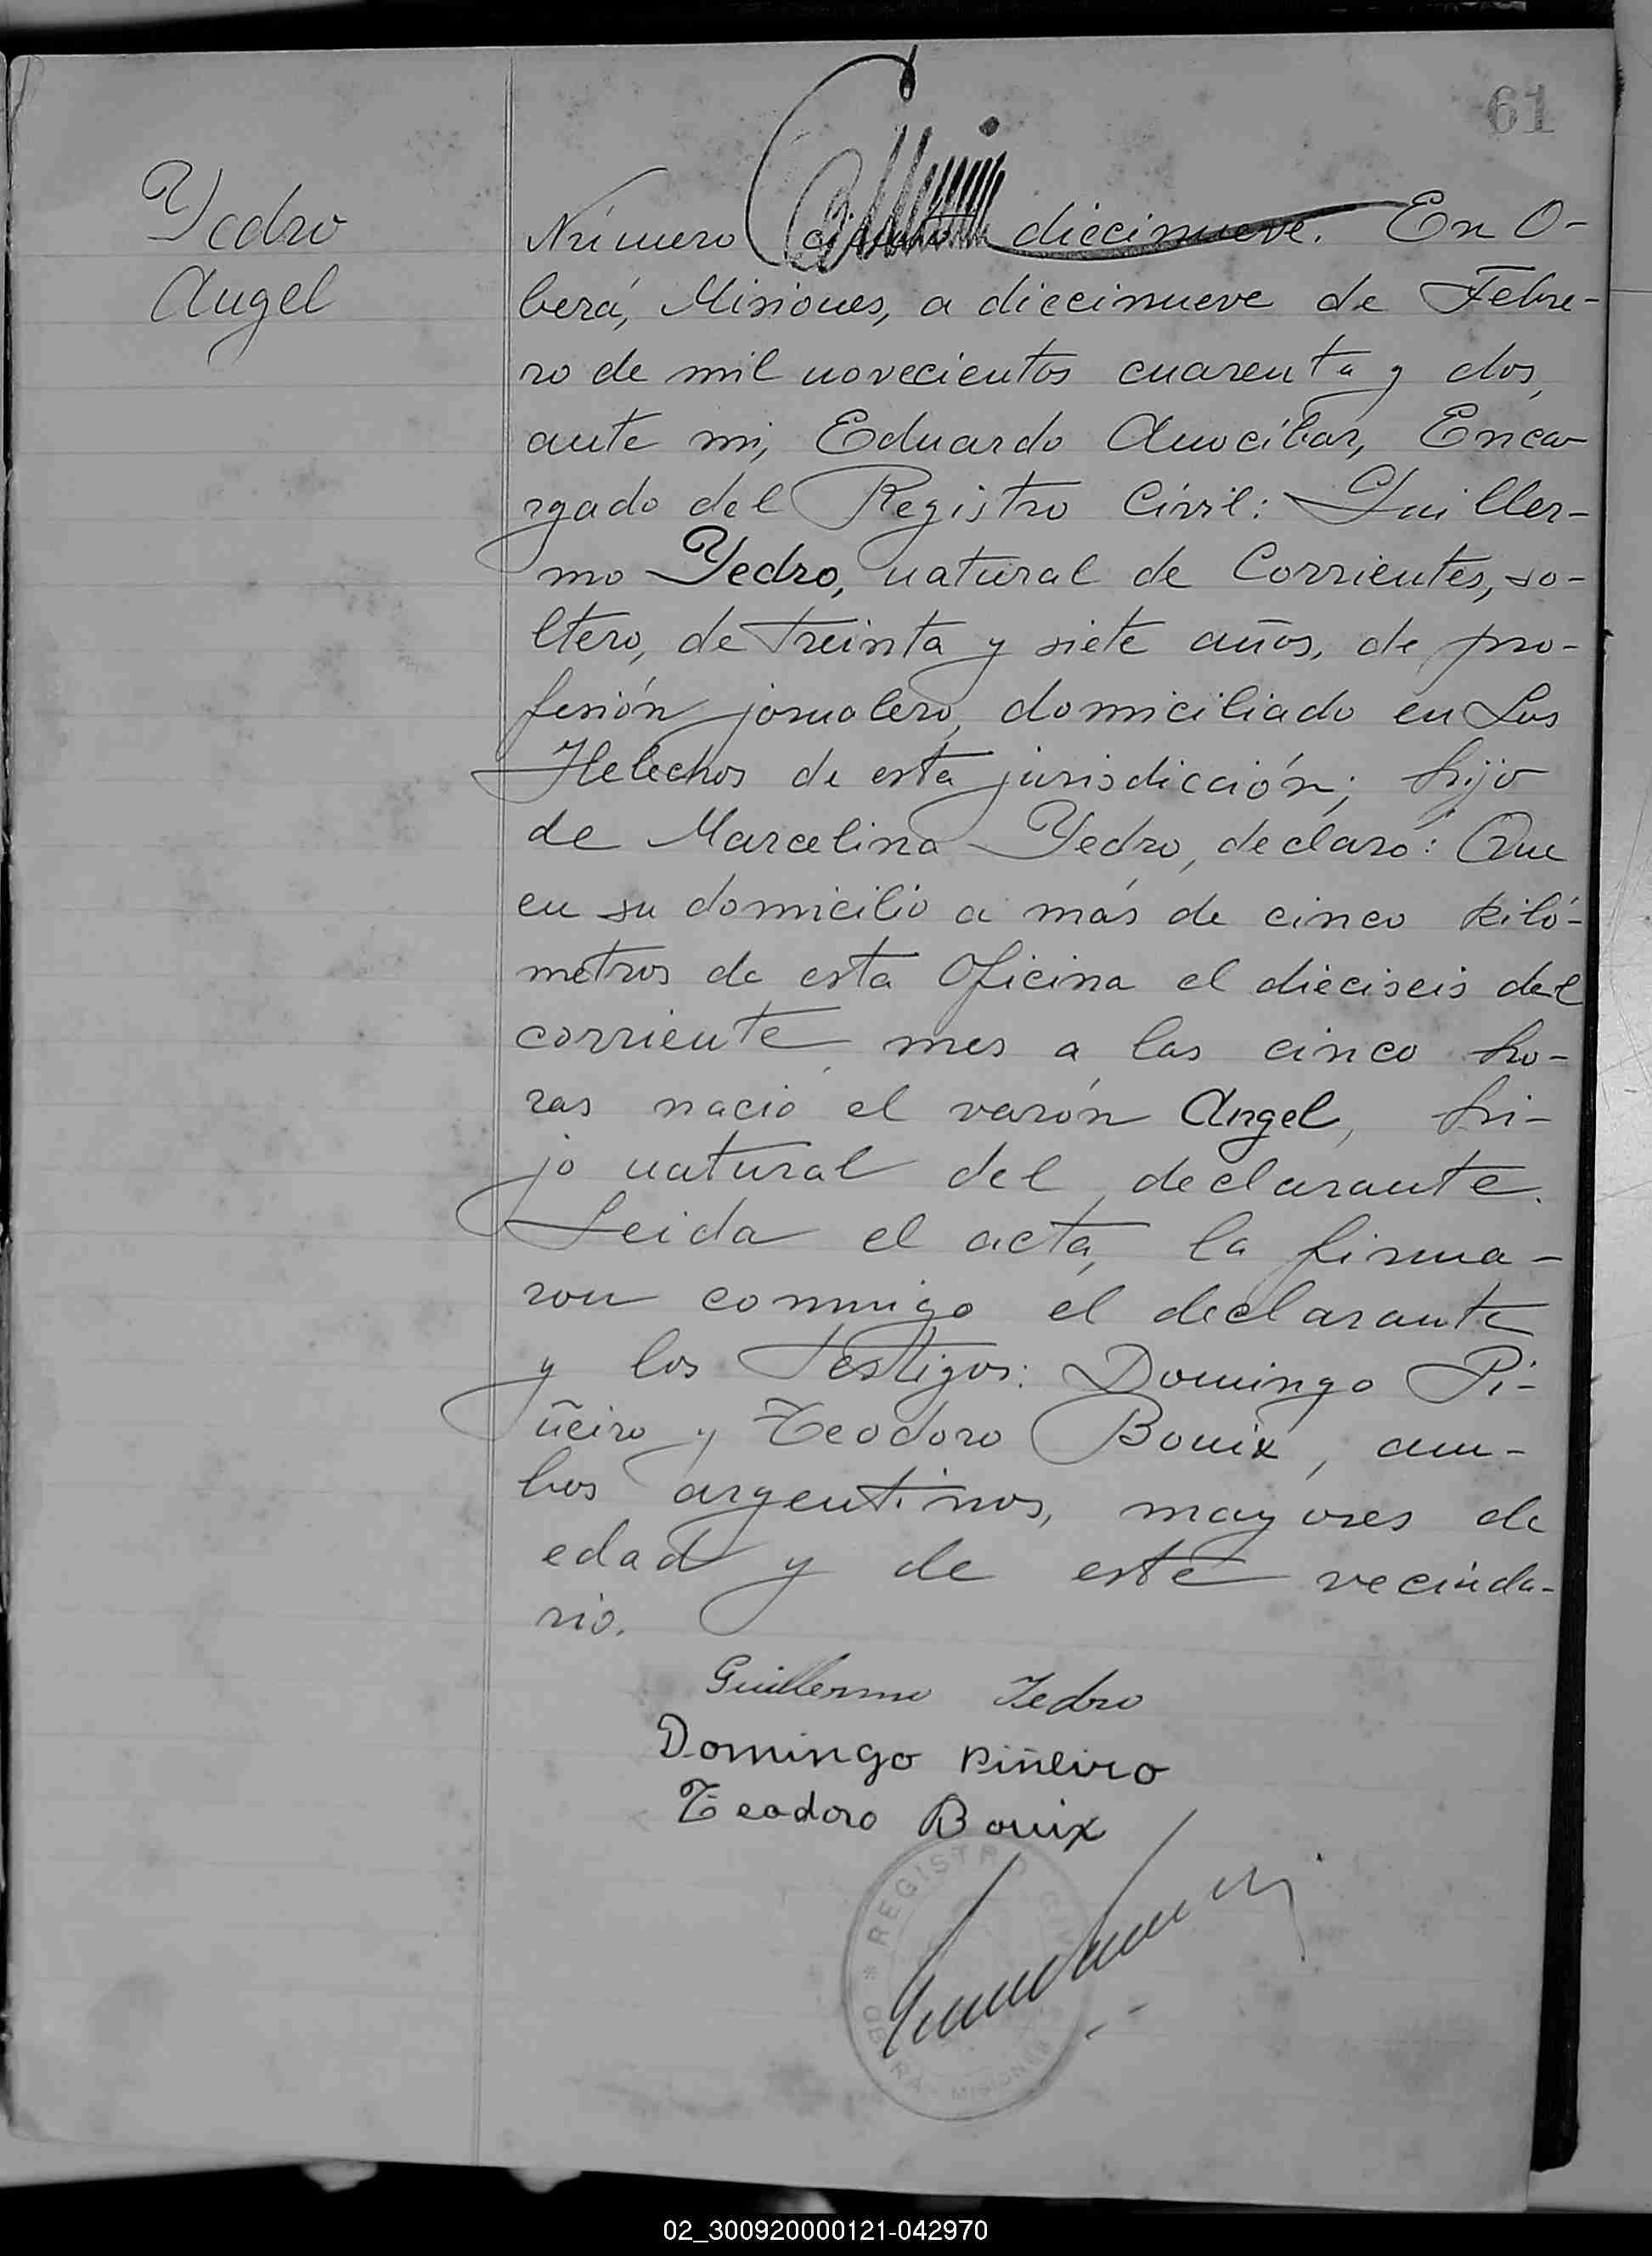 61
Yedro
Angel
Número ciento diecinueve. En O-
berá, Misiones, a diecinueve de Febre-
ro de mil novecientos cuarenta y dos,
ante mi, Eduardo Amocíbar, Enca-
rgado del Registro Civil: Guiller-
mo Yedro, natural de Corrientes, so-
ltero, de treinta y siete años, de pro-
fesión jornalero, domiciliado en Los
Helechos de esta jurisdicción; hijo
de Marcelina Yedro, declaró: Que
en su domicilio a más de cinco kiló-
metros de esta Oficina el dieciseis del
corriente mes a las cinco ho-
ras nació el varón Angel, hi-
jo natural del declarante.
Leida el acta, la firma-
ron conmigo el declarante
y los Testigos: Domingo Pi-
ñeiro y Teodoro Bouix, am-
bos argentinos, mayores de
edad y de este vecinda-
rio.
Guillermo Yedro
Domingo Piñeiro
Teodoro Bouix
REGISTRO CIVIL
OBERÁ - MISIONES
02_300920000121-042970